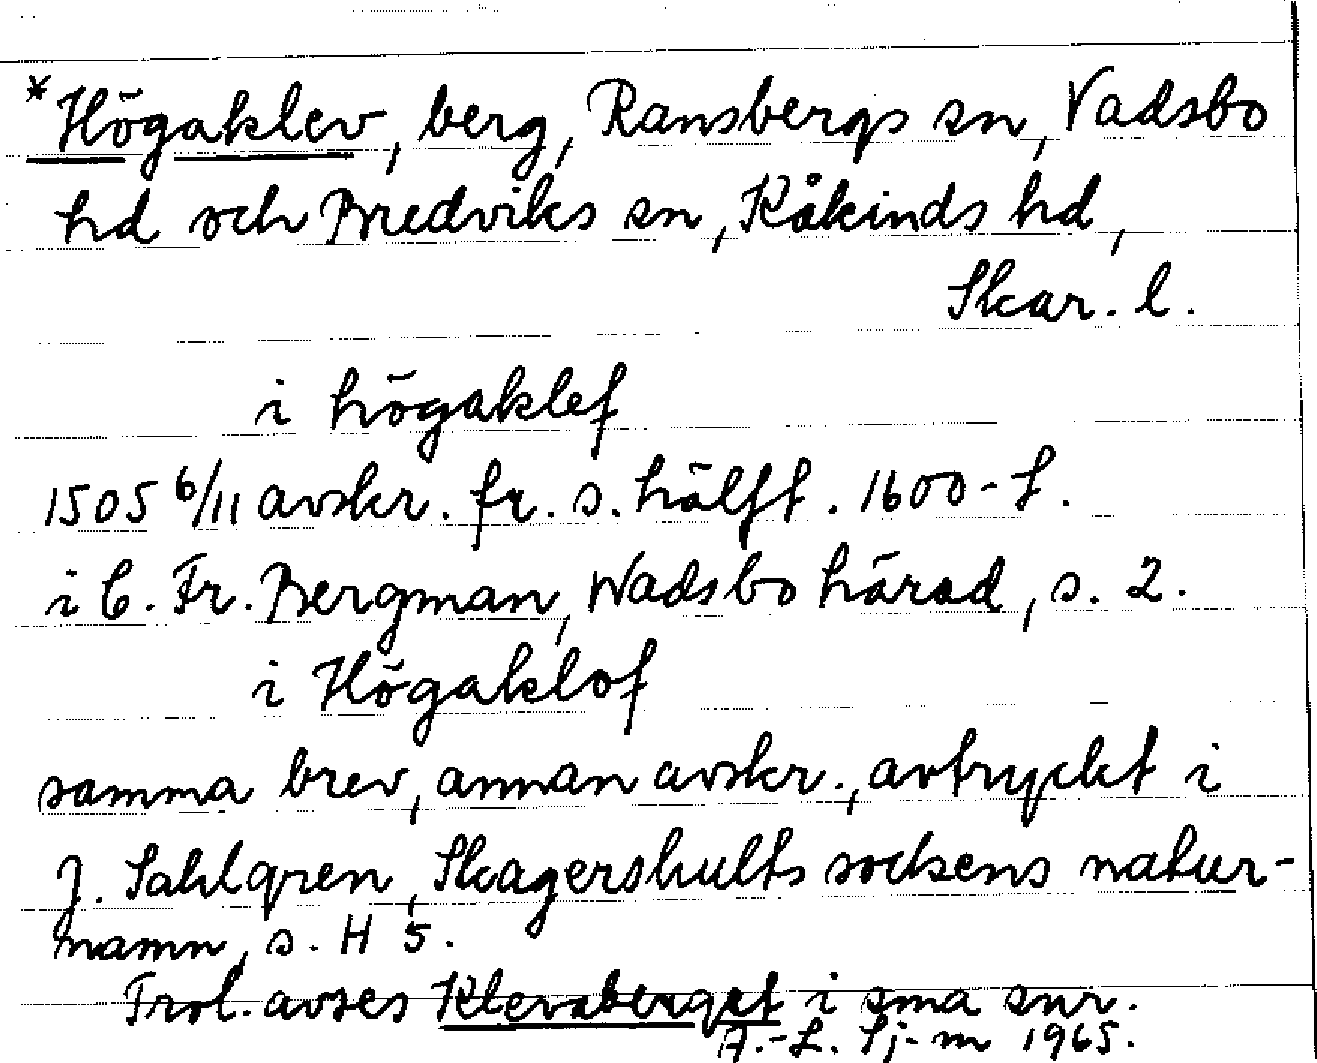 *Högaklev, berg, Ransbergs sn, Vadsbo
hd och Bredviks sn, Kåkinds hd,
Skar. l.
i högaklef
1505 6/11 avskr. fr. s. hälft. 1600-t.
i C. Fr. Bergman, Wadsbo härad, s. 2.
i Högaklof
samma brev, annan avskr., avtryckt i
J. Sahlgren, Skagershults sockens natur-
namn, s. H 5.
Trol. avses Klevaberget i sma snr.
A.-L. Sj-m 1965.